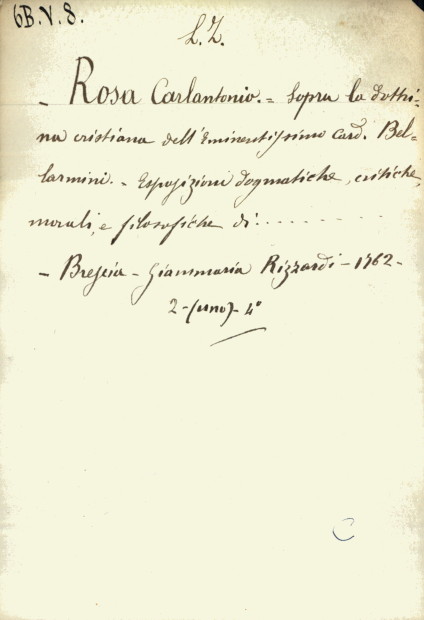 6B.V.8.
L.Z.
- Rosa Carlantonio. = Sopra la dottri=
na cristiana dell'Eminentissimo Card. Bel=
larmini. - Esposizioni dogmatiche, critiche,
morali, e filosofiche di. . . . . . . . . .
- Brescia - Giammaria Rizzardi - 1762 -
2 - (uno) - 4°
C